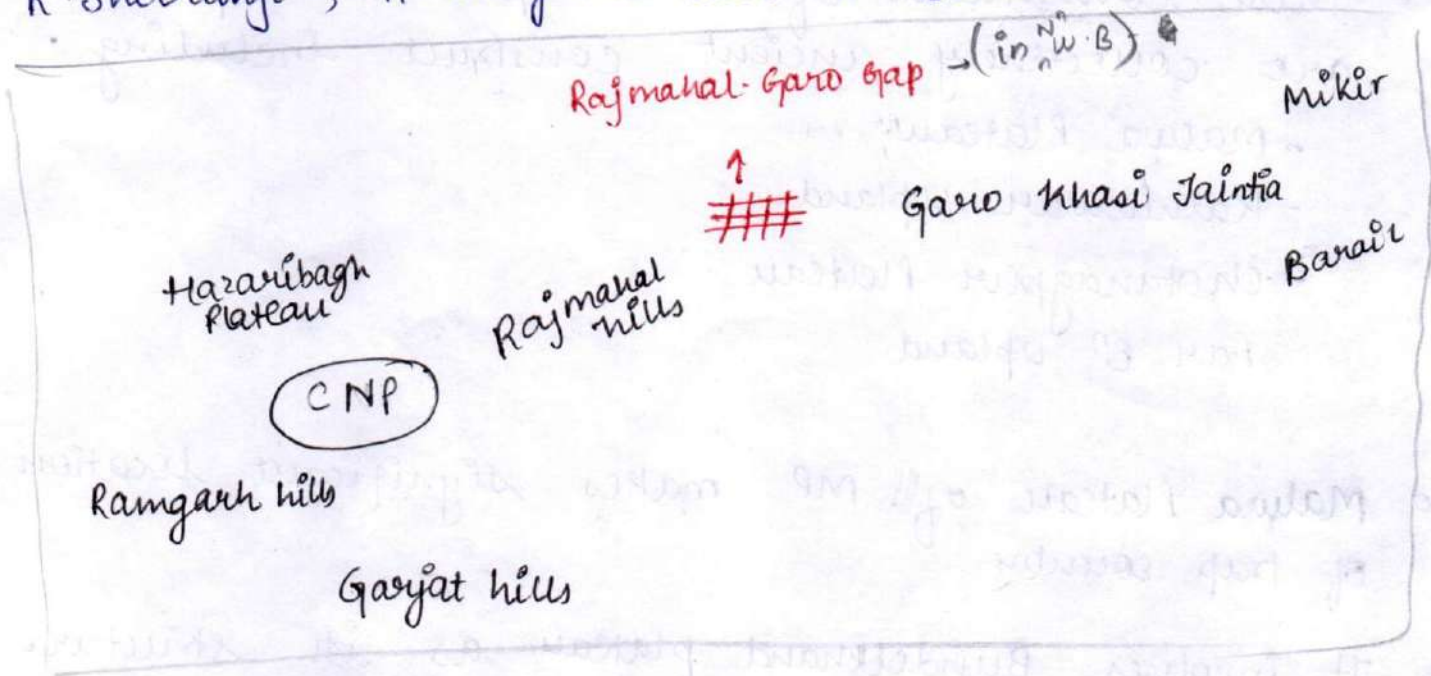 Rajmahal-Garo Gap → (in N W.B)
Mikir
Garo Khasi Jaintia
Barail
Hazaribagh
Plateau
Rajmahal
hills
CNP
Ramgarh hills
Garjat hills